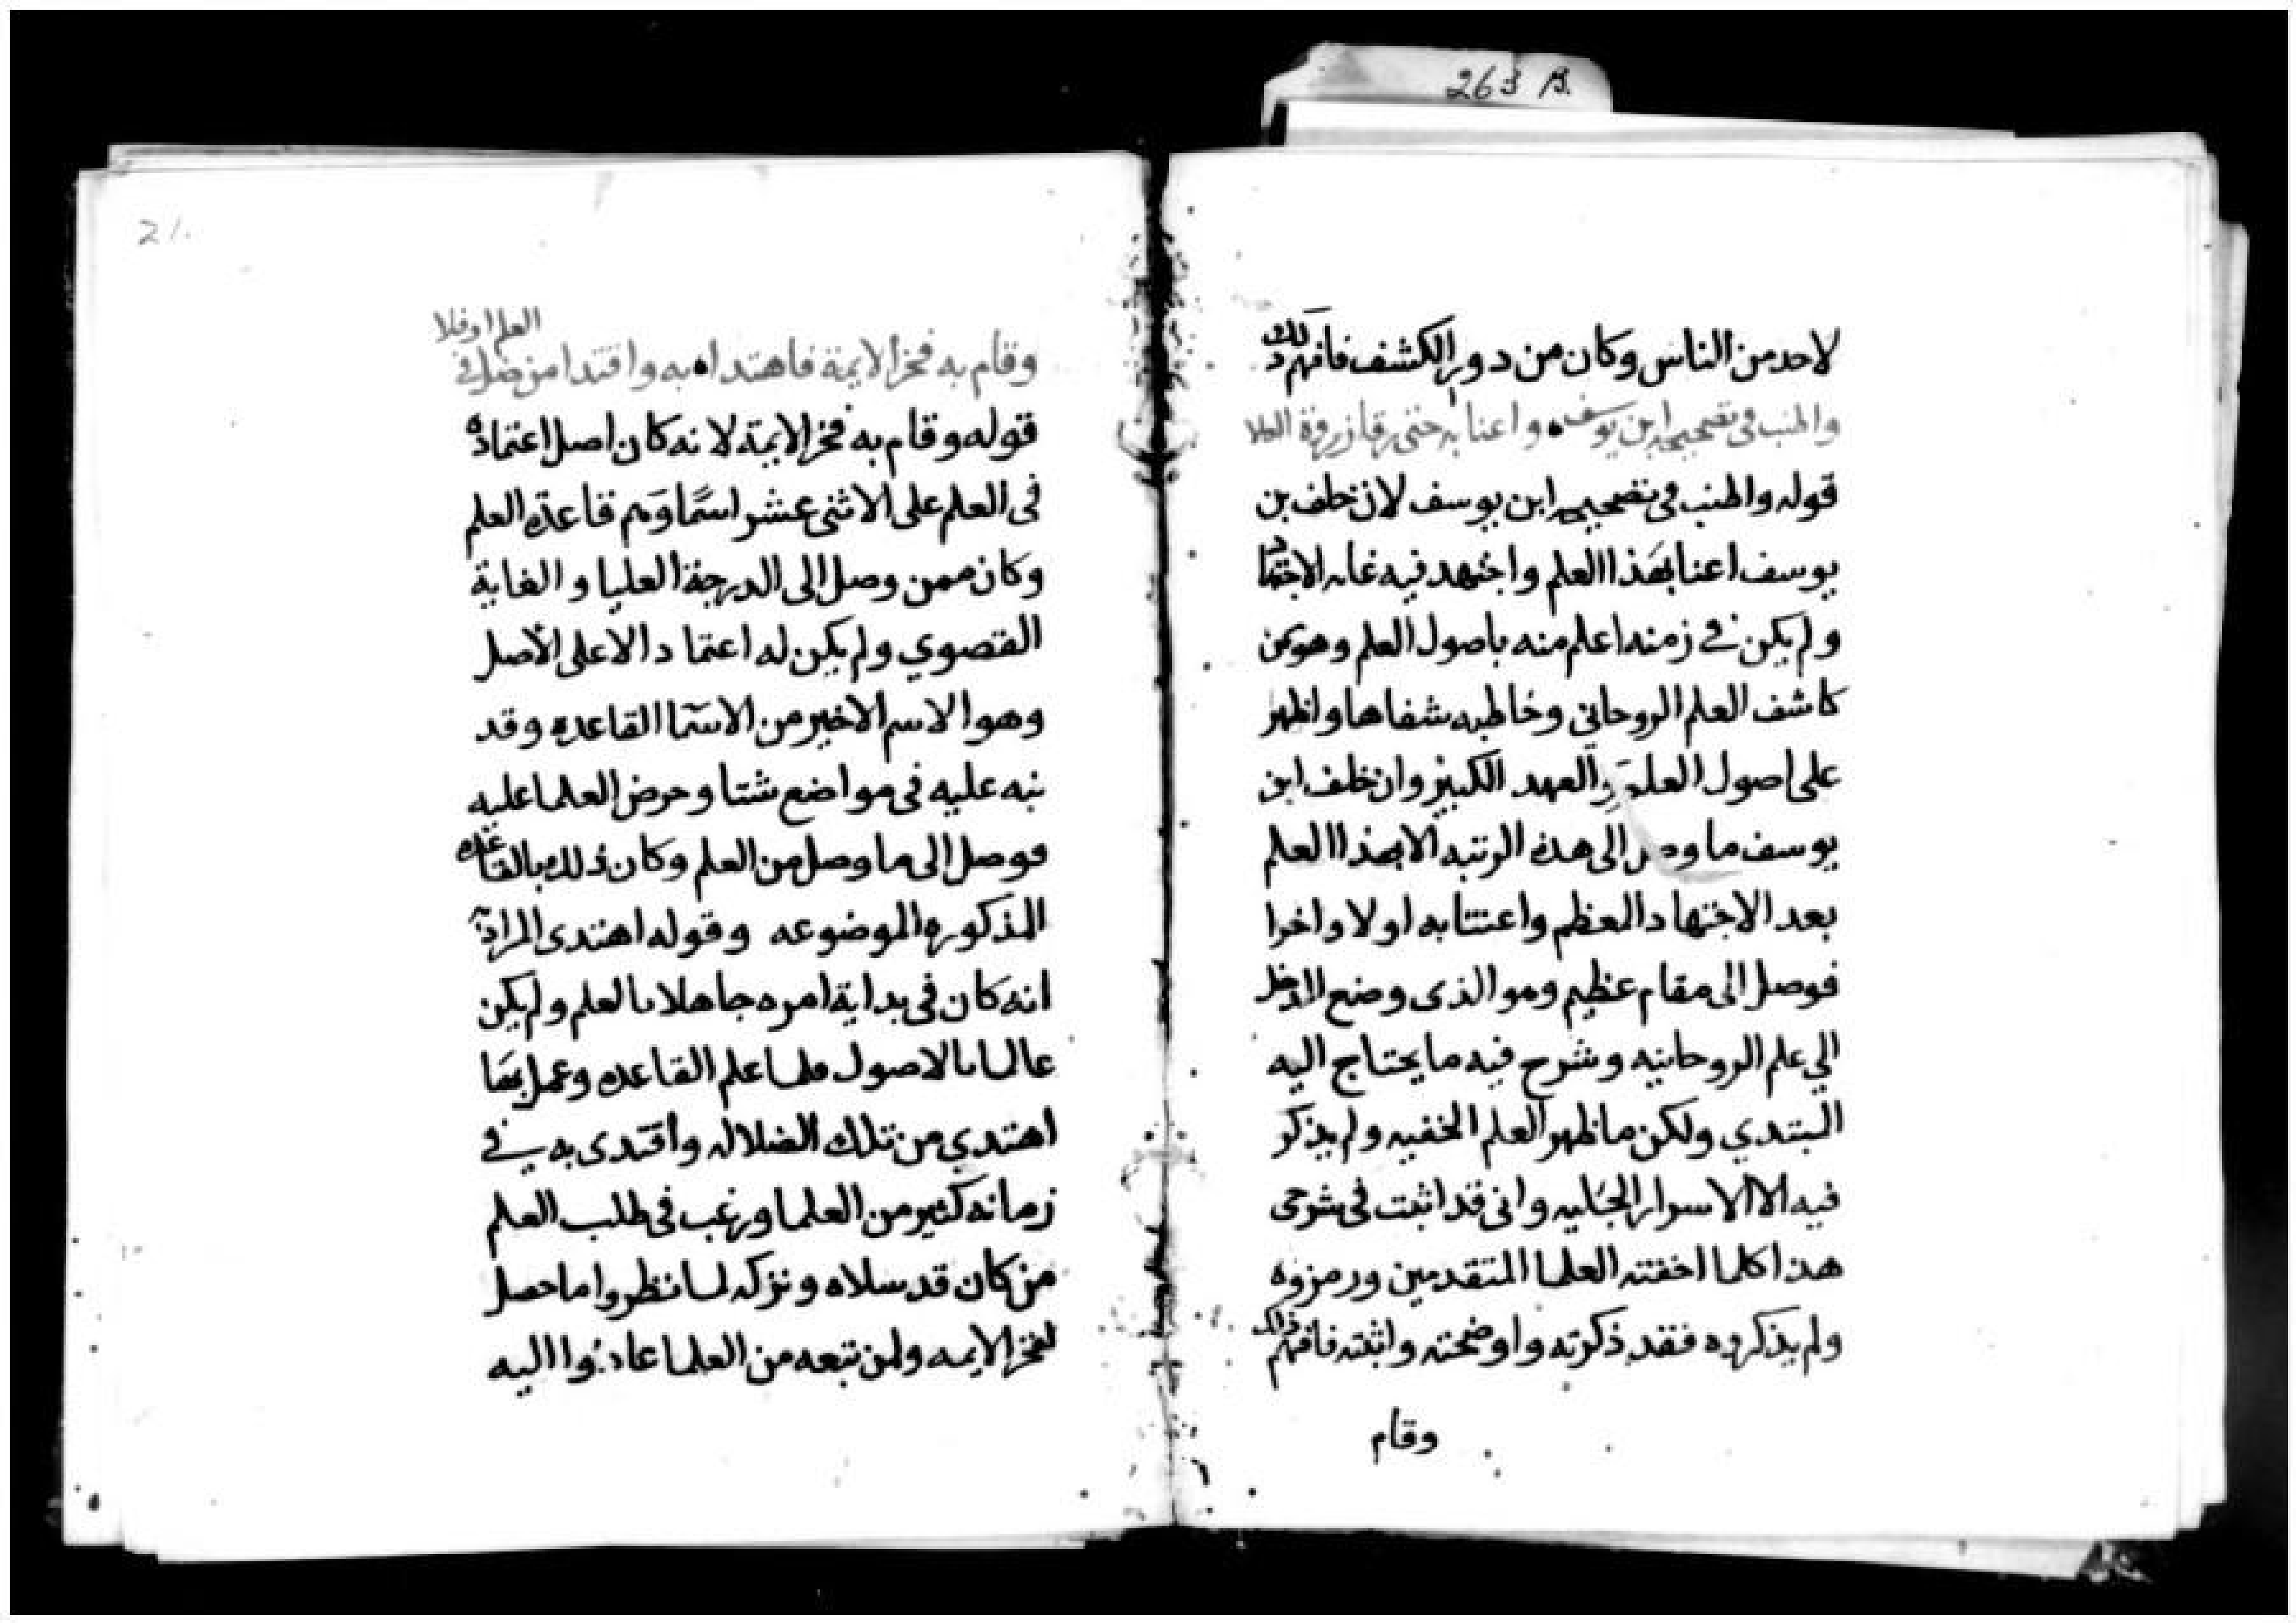 263 B.
لاحد من الناس وكان من دور الكشف فافهم ذلك
والمنب فى تصحيحه ابن يوسف واعنا به حتى رقا زروة العلا
قوله والمنب فى تصحيحه ابن يوسف لان خلف بن
يوسف اعنا بهذا العلم واجتهد فيه غايه الاجتهاد
ولم يكن في زمنه اعلم منه باصول العلم وهو من
كاشف العلم الروحانى وخاطبه شفاها واظهر
على اصول العلم والعهد الكبير وان خلف ابن
يوسف ما وصل الى هذه الرتبه الا بهذا العلم
بعد الاجتهاد العظم واعتنا به اولا واخرا
فوصل الى مقام عظيم وهو الذى وضع المدخل
الي علم الروحانيه وشرح فيه ما يحتاج اليه
المبتدي ولكن ما ظهر العلم الخفيه ولم يذكر
فيه الا الاسرار الجليه وانى قد اثبت فى شرحى
هذا كلما اخفته العلما المتقدمين ورمزوه
ولم يذكروه فقد ذكرته واوضحته واثبته فافهم ذلك
وقام
21.
وقام به فخر الايمة فاهتدا به واقتدا من ضل فى العلم اوفلا
قوله وقام به فخر الايمة لانه كان اصل اعتماده
فى العلم على الاثنى عشر اسما وهم قاعدة العلم
وكان ممن وصل الى الدرجة العليا والغاية
القصوي ولم يكن له اعتماد الا على الاصل
وهو الاسم الاخير من الاسما القاعده وقد
نبه عليه فى مواضع شتا وحرض العلما عليه
فوصل الى ما وصل من العلم وكان ذلك بالقاعده
المذكوره الموضوعه وقوله اهتدى المراد به
انه كان فى بداية امره جاهلا بالعلم ولم يكن
عالما بالاصول فلما علم القاعده وعمل بها
اهتدي من تلك الضلاله واقتدى به في
زمانه كثير من العلما ورغب فى طلب العلم
من كان قد سلاه وتركه لما نظروا ما حصل
لفخر الايمه ولمن تبعه من العلما عادوا اليه